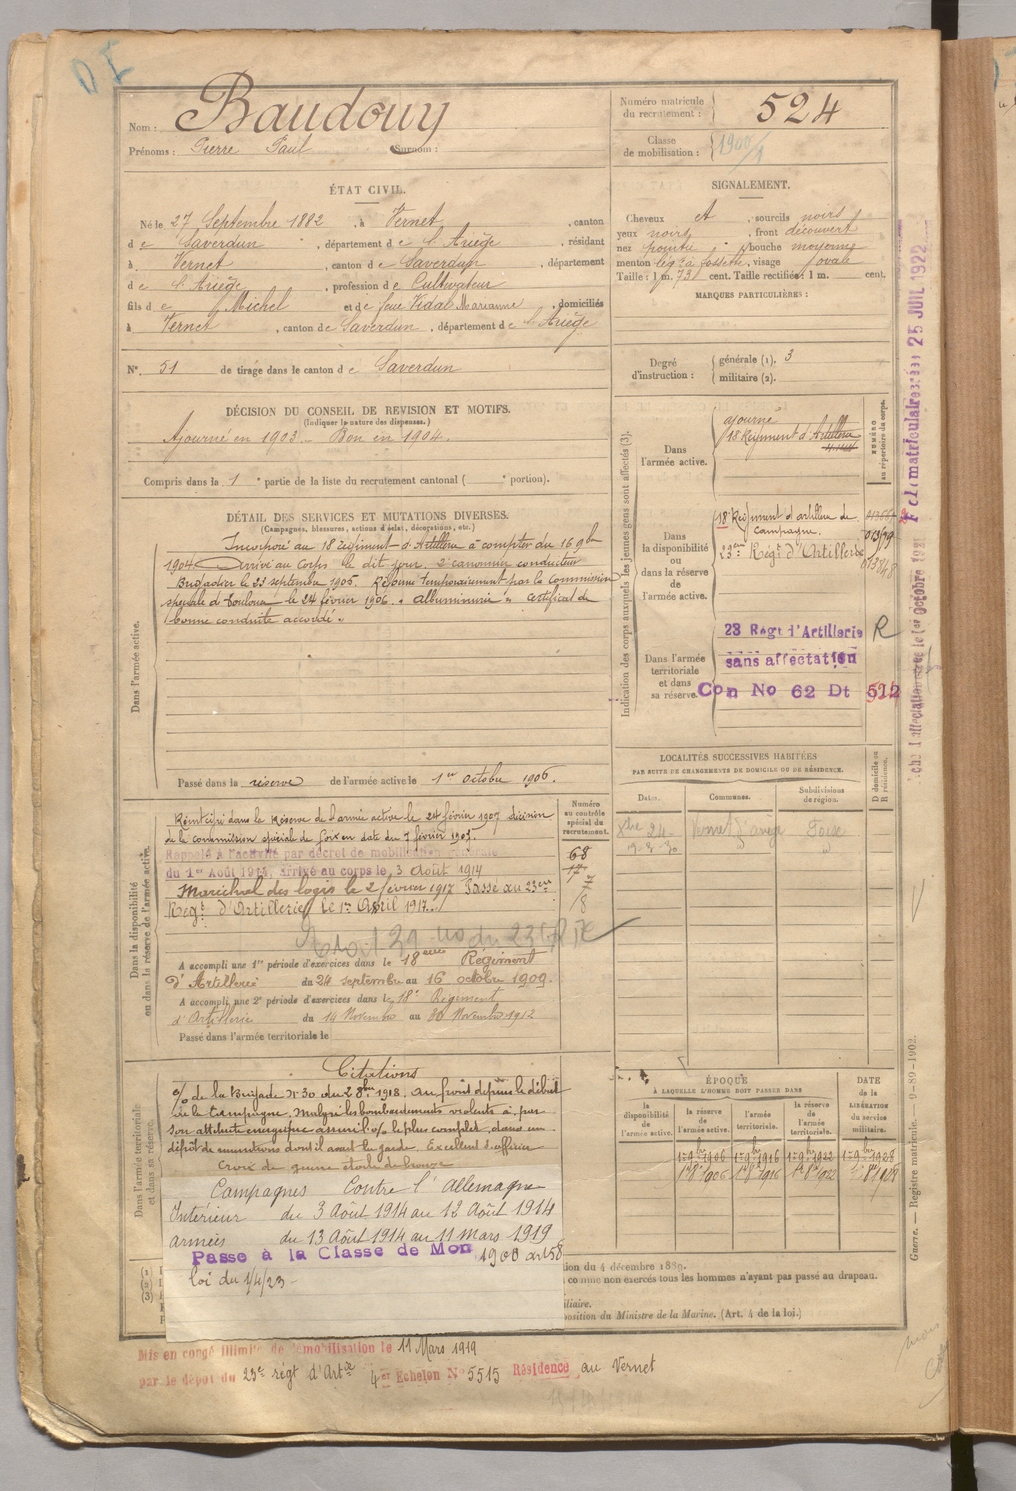 Nom : Baudouy
Prénoms : Pierre Paul Surnom :
Numéro matricule du recrutement : 524
Classe de mobilisation : 1900
ÉTAT CIVIL.
Né le 27 Septembre 1882, à Vernet, canton
de Saverdun, département de l'Ariège, résidant
à Vernet, canton de Saverdun, département
de l'Ariège, profession de Cultivateur
fils de Michel et de feue Vidal Marianne, domiciliés
à Vernet, canton de Saverdun, département de l'Ariège
N° 51 de tirage dans le canton de Saverdun
SIGNALEMENT.
Cheveux et, sourcils noirs
yeux noirs, front découvert
nez pointu, bouche moyenne
menton à fossette, visage ovale
Taille : 1 m. 73 cent. Taille rectifiée : 1 m. cent.
MARQUES PARTICULIÈRES :
Degré d'instruction : générale (1). 3
militaire (2).
DÉCISION DU CONSEIL DE REVISION ET MOTIFS.
(Indiquer la nature des dispenses.)
Ajourné en 1903. Bon en 1904.
Compris dans la 1e partie de la liste du recrutement cantonal ( e portion).
DÉTAIL DES SERVICES ET MUTATIONS DIVERSES.
(Campagnes, blessures, actions d'éclat, décorations, etc.)
Dans l'armée active.
Incorporé au 18 régiment d'Artillerie à compter du 16 9bre
1904. Arrivé au corps le dit jour. 2e canonnier conducteur
Brigadier le 23 septembre 1905. Réformé temporairement par la commission
spéciale de Toulouse le 24 février 1906. "albuminurie" certificat de
bonne conduite accordé.
Passé dans la réserve de l'armée active le 1er octobre 1906.
Indication des corps auxquels les jeunes gens sont affectés (3).
NUMÉRO au répertoire du corps.
Dans l'armée active.
ajourné
18 Régiment d'Artillerie
Dans la disponibilité ou dans la réserve de l'armée active.
18e Régiment d'artillerie de
campagne.
23ème Régt d'Artillerie
Dans l'armée territoriale et dans sa réserve.
23 Régt d'Artillerie R
sans affectation
Con No 62 Dt 512
25 JUIL 1922
LOCALITÉS SUCCESSIVES HABITÉES
PAR SUITE DE CHANGEMENTS DE DOMICILE OU DE RÉSIDENCE.
Dates. Communes. Subdivisions de région. D domicile ou R résidence.
Xbre 24 Vernet d'ariège Foix
Dans la disponibilité ou dans la réserve de l'armée active.
Numéro au contrôle spécial du recrutement.
Réintégré dans la Réserve de l'armée active le 24 février 1907 décision
de la commission spéciale de Foix en date du 7 février 1907.
Rappelé à l'activité par décret de mobilisation générale
du 1er Août 1914, arrivé au corps le 3 Août 1914
Maréchal des logis le 2 février 1917 Passé au 23ème
Régt d'Artillerie le 1er Avril 1917.
68
A accompli une 1re période d'exercices dans le 18ème Régiment
d'Artillerie du 24 septembre au 16 octobre 1909.
A accompli une 2e période d'exercices dans le 18e Régiment
d'Artillerie du 14 Novembre au 30 Novembre 1912
Passé dans l'armée territoriale le
Dans l'armée territoriale et dans sa réserve.
Citations
O/ de la Brigade N° 30 du 2 8bre 1918. Au front depuis le début
de la Campagne. Malgré les bombardements violents a, par
son attitude énergique assuré l'o/ le plus complet, dans un
dépôt de munitions dont il avait la garde. Excellent s. officier
Croix de guerre étoile de bronze
Campagnes Contre l'Allemagne
Intérieur du 3 Août 1914 au 12 Août 1914
armées du 13 Août 1914 au 11 Mars 1919
Passé à la Classe de Mon 1900 art 58
loi du 1/4/23
ÉPOQUE
À LAQUELLE L'HOMME DOIT PASSER DANS
DATE de la LIBÉRATION du service militaire.
la disponibilité de l'armée active. la réserve de l'armée active. l'armée territoriale. la réserve de l'armée territoriale.
1er 9bre 1906 1er 9bre 1916 1er 9bre 1922 1er 9bre 1928
1er 8bre 1906 1er 8bre 1916 1er 8bre 1922 1er 8bre 1928
tion du 4 décembre 1889.
comme non exercés tous les hommes n'ayant pas passé au drapeau.
iliaire.
position du Ministre de la Marine. (Art. 4 de la loi.)
Guerre. — Registre matricule. 9-89-1902.
Mis en congé illimité de démobilisation le 11 Mars 1919
par le dépôt du 23e régt d'Artie 4er Echelon N° 5515 Résidence au Vernet